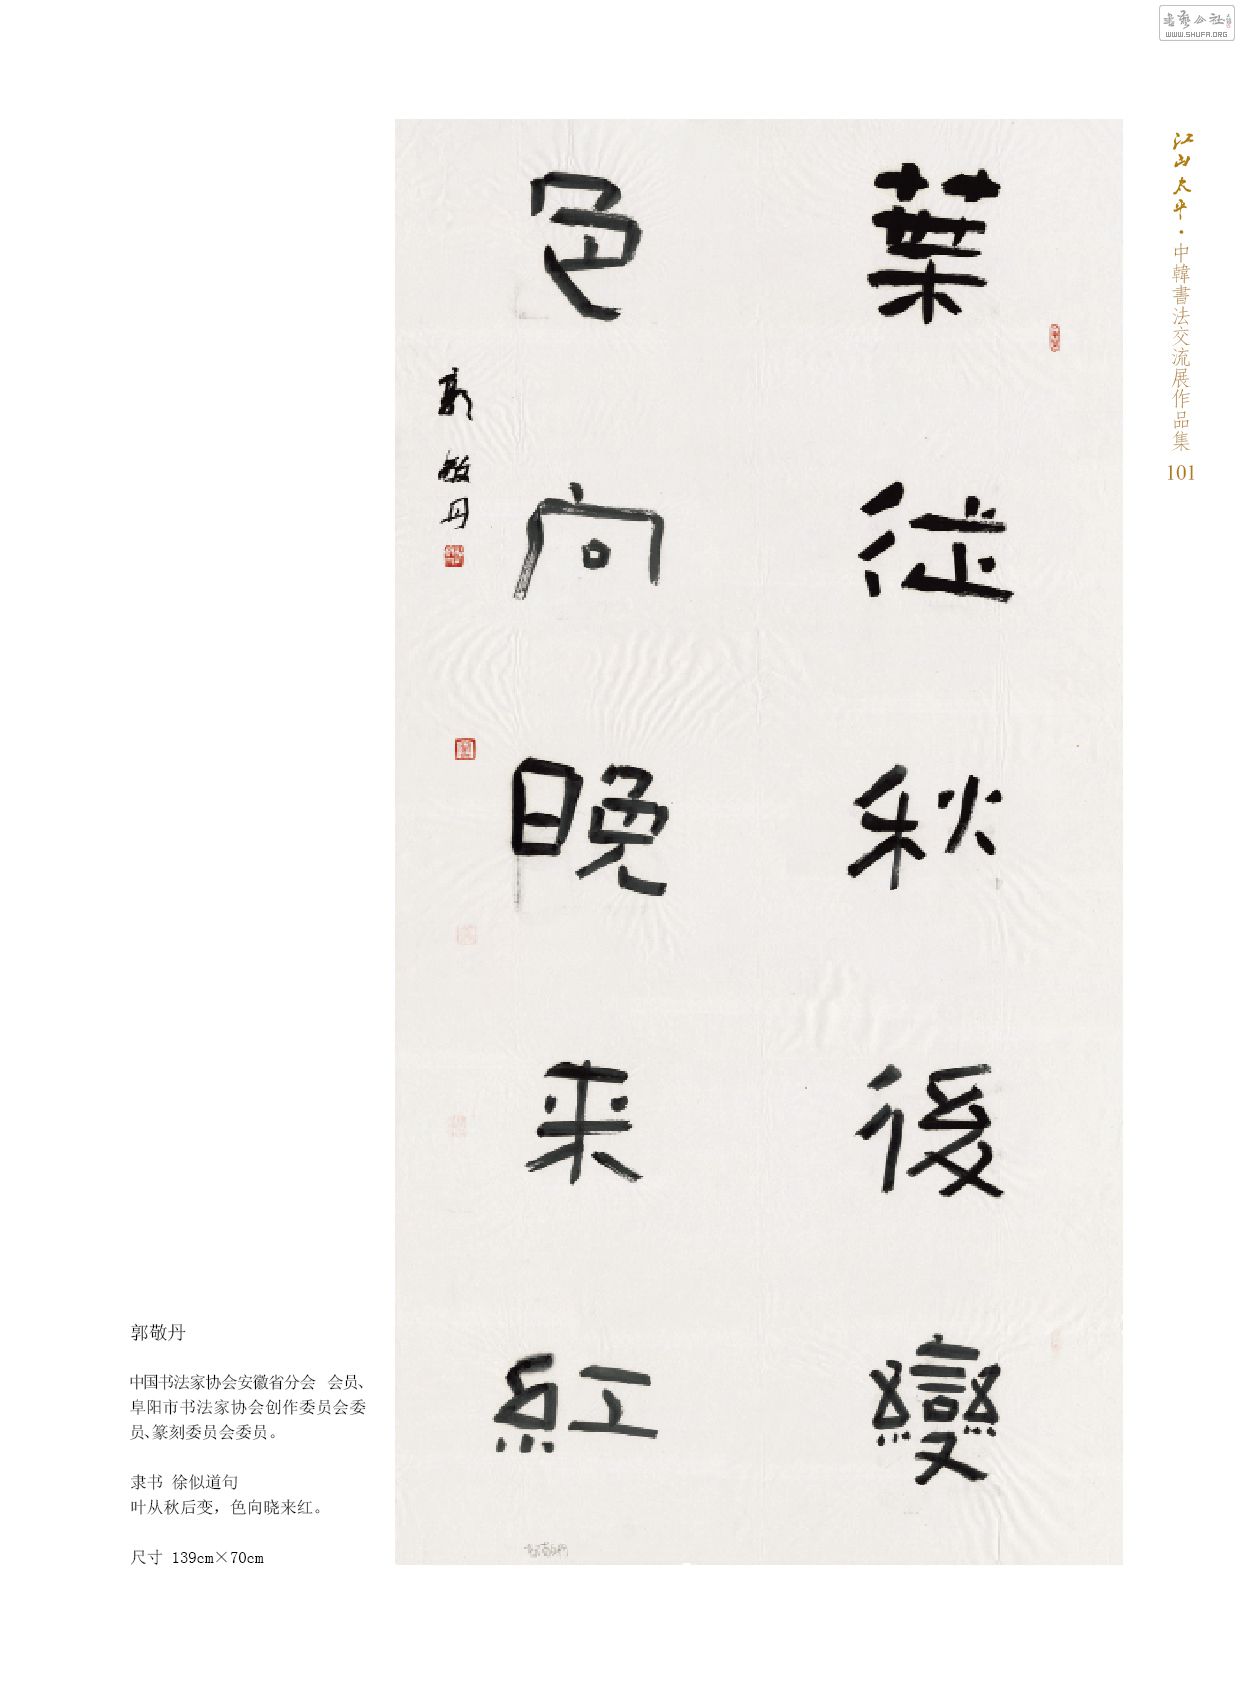 書藝公社
WWW.SHUFA.ORG
江山太平·中韓書法交流展作品集
101
葉從秋後變
色向晚来紅
郭敬丹
郭敬丹
中国书法家协会安徽省分会 会员、
阜阳市书法家协会创作委员会委
员、篆刻委员会委员。
隶书 徐似道句
叶从秋后变，色向晓来红。
尺寸 139cm×70cm